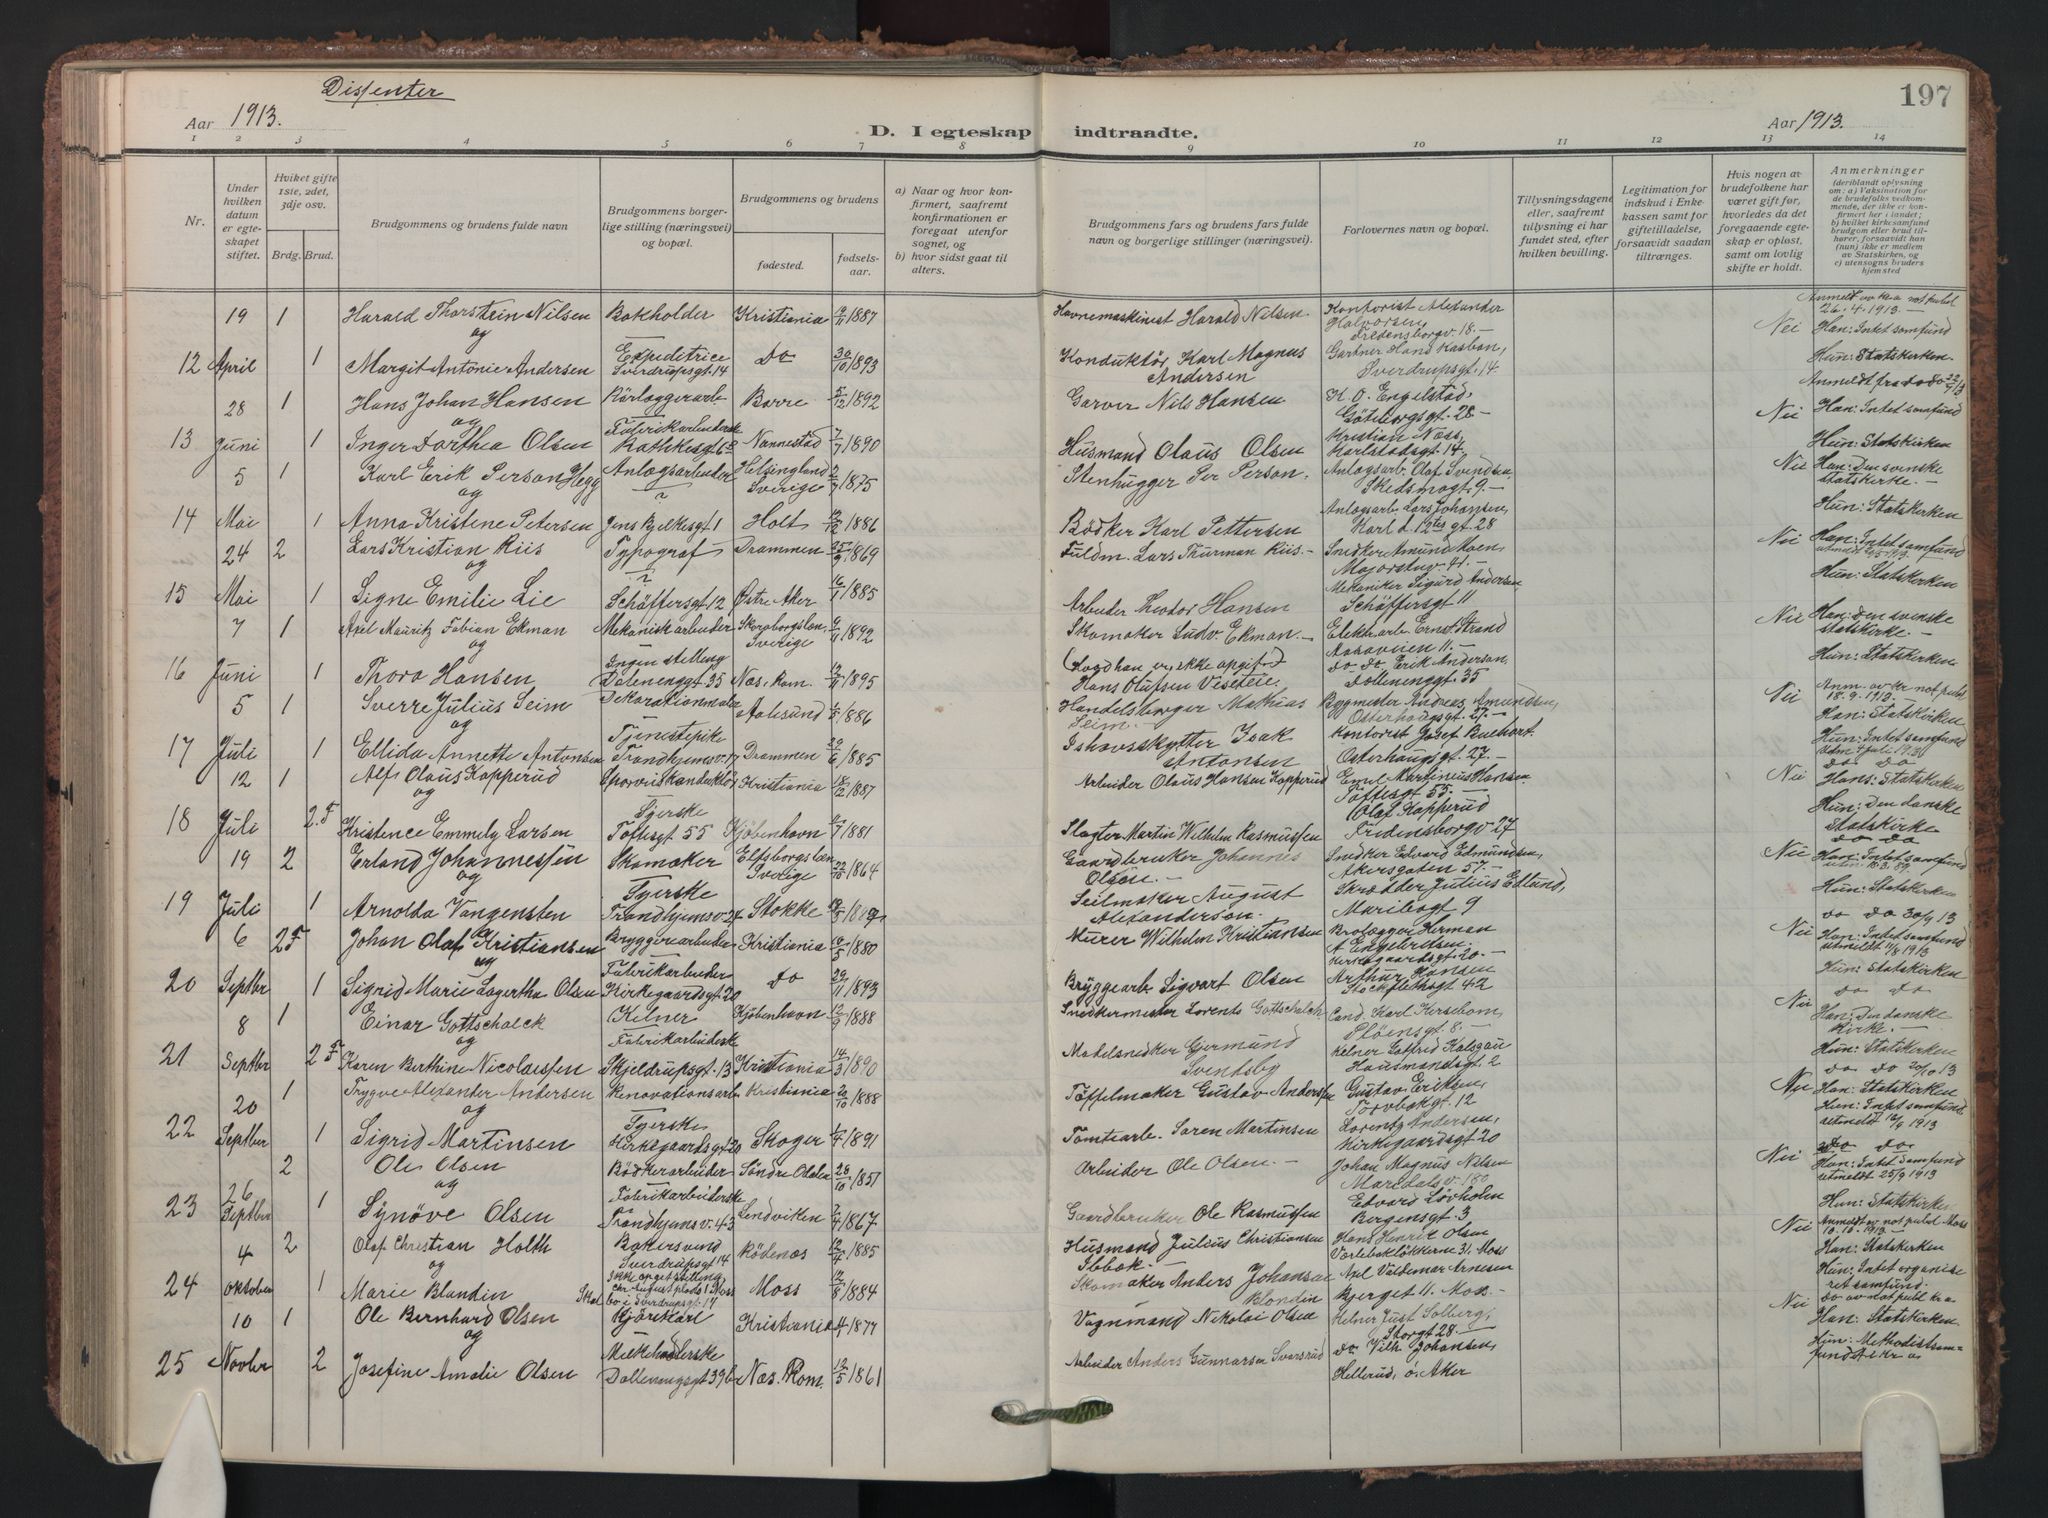 Dissenter
197
Aar 1913.
Aar 1913.
D. I egteskap indtraadte.
1 2 3 4 5 6 7 8 9 10 11 12 13 14
Nr.
Under hvilken datum er egteskapet stiftet.
Hviket gifte 1ste, 2det, 3dje osv.
Brdg. Brud.
Brudgommens og brudens fulde navn
Brudgommens borgerlige stilling (næringsvei) og bopæl.
Brudgommens og brudens
fødested.
fødselsaar.
a) Naar og hvor konfirmert, saafremt konfirmationen er foregaat utenfor sognet, og
b) hvor sidst gaat til alters.
Brudgommens fars og brudens fars fulde navn og borgerlige stillinger (næringsvei).
Forlovernes navn og bopæl.
Tillysningsdagene eller, saafremt tillysning ei har fundet sted, efter hvilken bevilling.
Legitimation for indskud i Enkekassen samt for giftetilladelse, forsaavidt saadan tiltrænges.
Hvis nogen av brudefolkene har været gift før, hvorledes da det foregaaende egteskap er opløst, samt om lovlig skifte er holdt.
Anmerkninger
(deriblandt oplysning om: a) Vaksination for de brudefolks vedkommende, der ikke er konfirmert her i landet; b) hvilket kirkesamfund brudgom eller brud tilhører, forsaavidt han (hun) ikke er medlem av Statskirken, og c) utensogns bruders hjemsted
19 1 Harald Thorstein Nilsen Bokholder Kristiania 1887 Havnemaskinist Harald Nilsen Kontorist Alexander Halvorsen, Fredensborgv. 18. Nei Han: Intet samfund
og
12 April 1 Margit Antonie Andersen Expeditrice Sverdrupsgt. 14 Do 30/10 1893 Konduktør Karl Magnus Andersen Sverdrupsgt. 14 Hun: Statskirken
28 1 Hans Johan Hansen Rørlæggerarb. Borre 5/12 1892 Garver Nils Hansen K. O. Engelstad, Göteborgsgt. 28 Nei Han: Intet samfund
og
13 Juni 1 Inger Dorthea Olsen Nannestad 7/7 1890 Husmand Olaus Olsen Kristian Næss, Karlstadsgt. 14 Hun: Statskirken
5 1 Karl Erik Person Hegg Anlægsarbeider Helsingland Sverige 1875 Stenhugger Per Person. Anlægsarb. Olaf Svendsen, Skedsmogt. 9. Nei Han: Den svenske statskirke.
og
14 Mai 1 Anna Kristine Petersen Jens Bjelkesgt. 1 Holt 1886 Bödker Karl Pettersen Anlægsarb. Lars Johansen, Karl d. 12tes gt. 28 Hun: Statskirken
24 2 Lars Kristian Riis Typograf Drammen 25/9 1869 Fuldm. Lars Thurman Riis. Snedker Amund Moen, Majorstuv. 41. Nei Han: Intet samfund
og
15 Mai 1 Signe Emilie Lie Schäffersgt. 12 Østre Aker 16/1 1885 Arbeider Teodor Hansen Mekaniker Sigurd Andersen Schäffersgt 11 Hun: Statskirken
7 1 Axel Mauritz Fabian Ekman Mekanisk arbeider Skaraborgslän, Sverige 1892 Skomaker Ludv. Ekman. Elektr.arb. Ernst Strand Nei Han: Den svenske statskirke.
og
16 Juni 1 Thora Hansen Ingen stilling Dælenenggt. 35 Næs, Rom. 1895 do do Erik Anderson, Dælenenggt. 35 Hun: Statskirken
5 1 Sverre Julius Seim Dekorationmaler Aalesund 1886 Handelsborger Mathias Seim. Bygmester Andreas Amundsen, Osterhausgt. 27. Nei Han: Statskirken
og
17 Juli 1 Ellida Annette Antonsen Tjenestepike Trondhjemsv. 17 Drammen 29/6 1885 Ishavsskytter Isak Antonsen Kontorist Josef Buchart Osterhausgt. 27. Hun: Intet samfund
12 1 Alf Olaus Kopperud Sporveiskonduktør Kristiania 18/12 1887 Arbeider Olaus Hansen Kopperud Emil Martinius Hansen Toftesgt 55. Nei Hans: Statskirken
og
18 Juli 2.F Kristence Emmely Larsen Syerske Toftesgt 55 Kjöbenhavn 1881 Slagter Martin Wilhelm Rasmussen Olaf Kopperud Fredensborgv 27 Hun: Den danske Statskirke
19 2 Erland Johannessen Skomaker Elfsborgslän Sverige 22/10 1864 Gaardbruker Johannes Olsen. Snedker Edvard Edmundsen, Akersgaten 57. Nei Han: Intet samfund
og
19 Juli 1 Arnolda Vangensten Syerske Trondhjemsv. 24 Stokke Seilmaker August Alexanderson. Skrædder Julius Edlund, Maribogt 9 Hun: Statskirken do do 30/9 13
6 2F Johan Olaf Kristiansen Bryggeriarbeider Kristiania 1880 Murer Wilhelm Kristiansen Brolægger Herman A Engebretsen. Kirkegaardsgt. 20. Nei Han: Intet samfund
og
20 Septbr 1 Sigrid Marie Lagertha Olsen Fabrikarbeider Kirkegaardsgt. 20 do 29/11 1893 Bryggearb. Sigvart Olsen Arthur Hansen Stockflethsgt 42 Hun: Statskirken do do
8 1 Einar Gottschalck Kelner Kjöbenhavn 1888 Snedkermester Lorents Gottschalch Cand. Karl Kirsebom, Plöensgt. 8. Nei Han: Den danske kirke.
og
21 Septbr 2 F Karen Berthine Nicolaisen Fabrikarbeiderske Skjeldrupsgt. 13 Kristiania 14/3 1890 Modelsnedker Gjermund Svendsby Hausmandsgt. 2 Hun: Statskirken
20 1 Trygve Alexander Andersen Renovationsarb. Kristiania 20/10 1888 Töffelmaker Gustav Andersen Gustav Eriksen, Torvbakgt. 12 Nei Han: Statskirken
og
22 Septber 1 Sigrid Martinsen Syerske Kirkegaardsgt. 20 Skoger 1/4 1891 Tomtearb. Søren Martinsen Lorentz Andersen, Kirkegaardsgt 20 Hun: Intet samfund,
26 2 Ole Olsen Bödkerarbeider Söndre Odalen 28/10 1851 Arbeider Ole Olsen. Johan Magnus Nilsen Maridalsv. 180 Nei Han: Intet samfund utmeldt 25/9 1913
og
23 Septber 1 Synöve Olsen Fabrikarbeiderske Trondhjemsv. 43 Lendviken 1867 Gaardbruker Ole Rasmussen Edvard Lövholm Bergensgt. 3 Hun: Statskirken
4 2 Olaf Christian Holth Bakersvend Sverdrupsgt 14 Rödenæs 1885 Husmand Julius Christiansen Hans Henrik Olsen Værlebakløkkerne 31. Moss Nei Han: Statskirken
og
24 oktober 1 Marie Blandin Moss 1884 Skomaker Anders Johansen Blondin Axel Valdemar Arnesen Bjerget 11. Moss. Hun: Intet organiseret samfund.
10 1 Ole Bernhard Olsen Kjörekarl Kristiania 1877 Vognmand Nikolai Olsen Kelner Just Solberg, Storgt 28. Nei Han: Statskirken
og
25 Novbr 2 Josefine Amalie Olsen Dælenenggt 39b Næs. Rom. 12/5 1861 Arbeider Anders Gunnarsen Svarsrud do Wilh. Johansen, Hellerud, ö. Aker Hun: Methodistsamfundet i Kr a